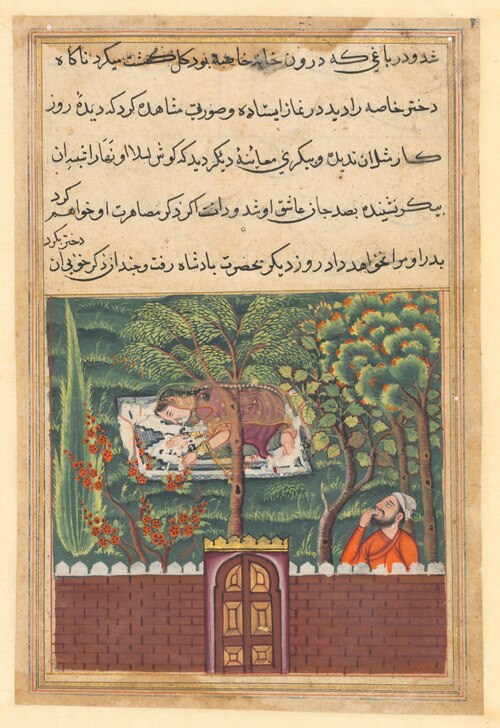 شد و در باغی که درون خانه خاصه بود کل کشت میکرد ناکاه
دختر خاصه را دید در نماز ایستاده و صورتی مشاهده کرد که دیدهٔ روز
کار مثل ان ندیده و پیکری معاینهٔ دیگر دید که کوش لیلا و نهار
پیکر شنیده بصد جان عاشق او شد و دانست اکر ذکر مصاهرت او خواهم کرد
پدر او مرا نخواهد داد روز دیکر بحضرت بادشاه رفت و چندان ذکر خوبی ان
دختر بکرد